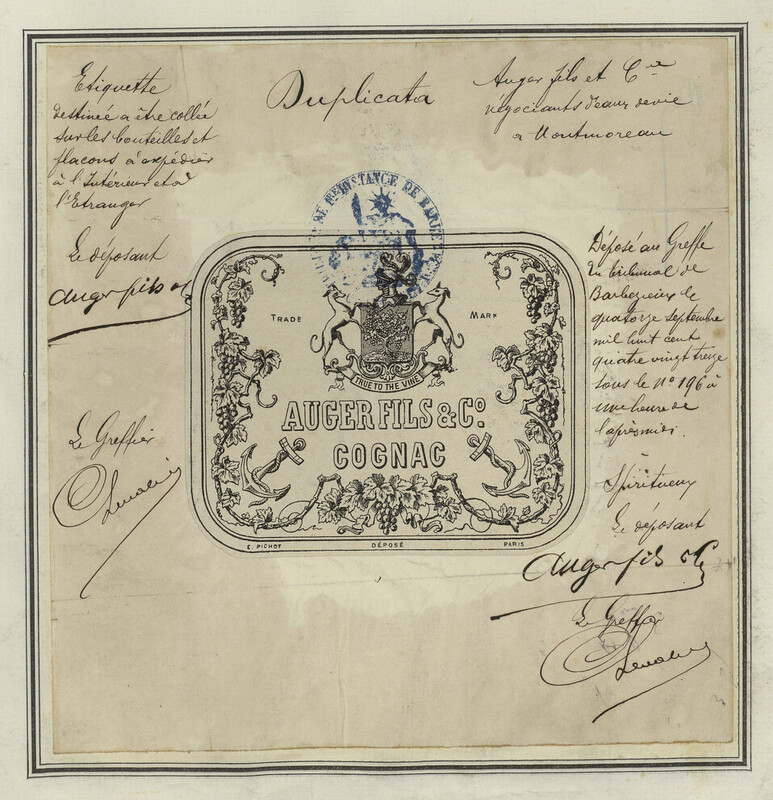 Duplicata
Etiquette
destinée a être collée
sur les bouteilles et
flacons à expédier
à l'Intérieur et à
l'Etranger
Le déposant
Auger fils et C
Le Greffier
Auger fils et Cie
négociants d'eaux de vie
a Montmoreau
TRADE MARK
TRUE TO THE VINE
AUGER FILS & Co.
COGNAC
E. PICHOT DÉPOSÉ PARIS
Déposé au Greffe
du tribunal de
Barbezieux le
quatorze septembre
mil huit cent
quatre vingt treize
sous le no 196 à
une heure de
l'après midi.
Spiritueux
Le déposant
Auger fils et C
Le Greffier